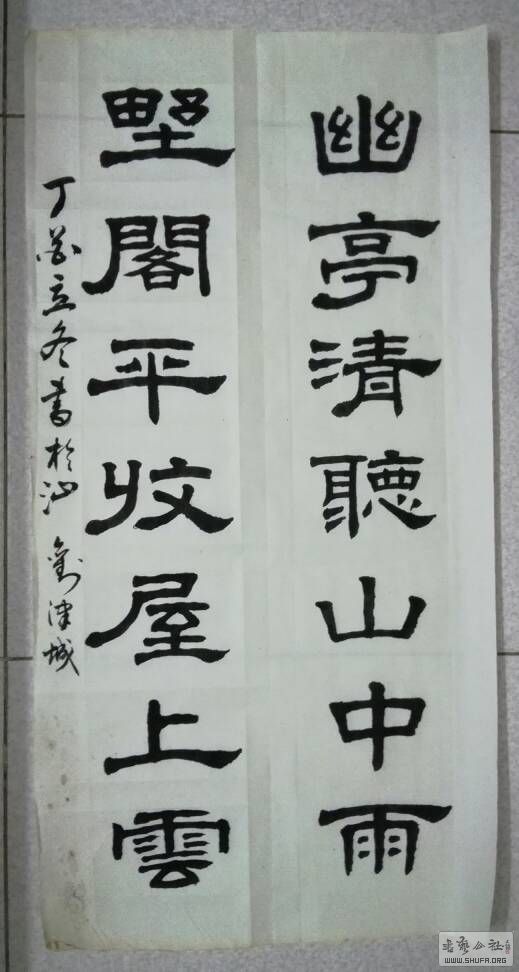 幽亭清聽山中雨
野閣平收屋上雲
丁酉立冬書於汕 劉津城
書藝公社
WWW.SHUFA.ORG